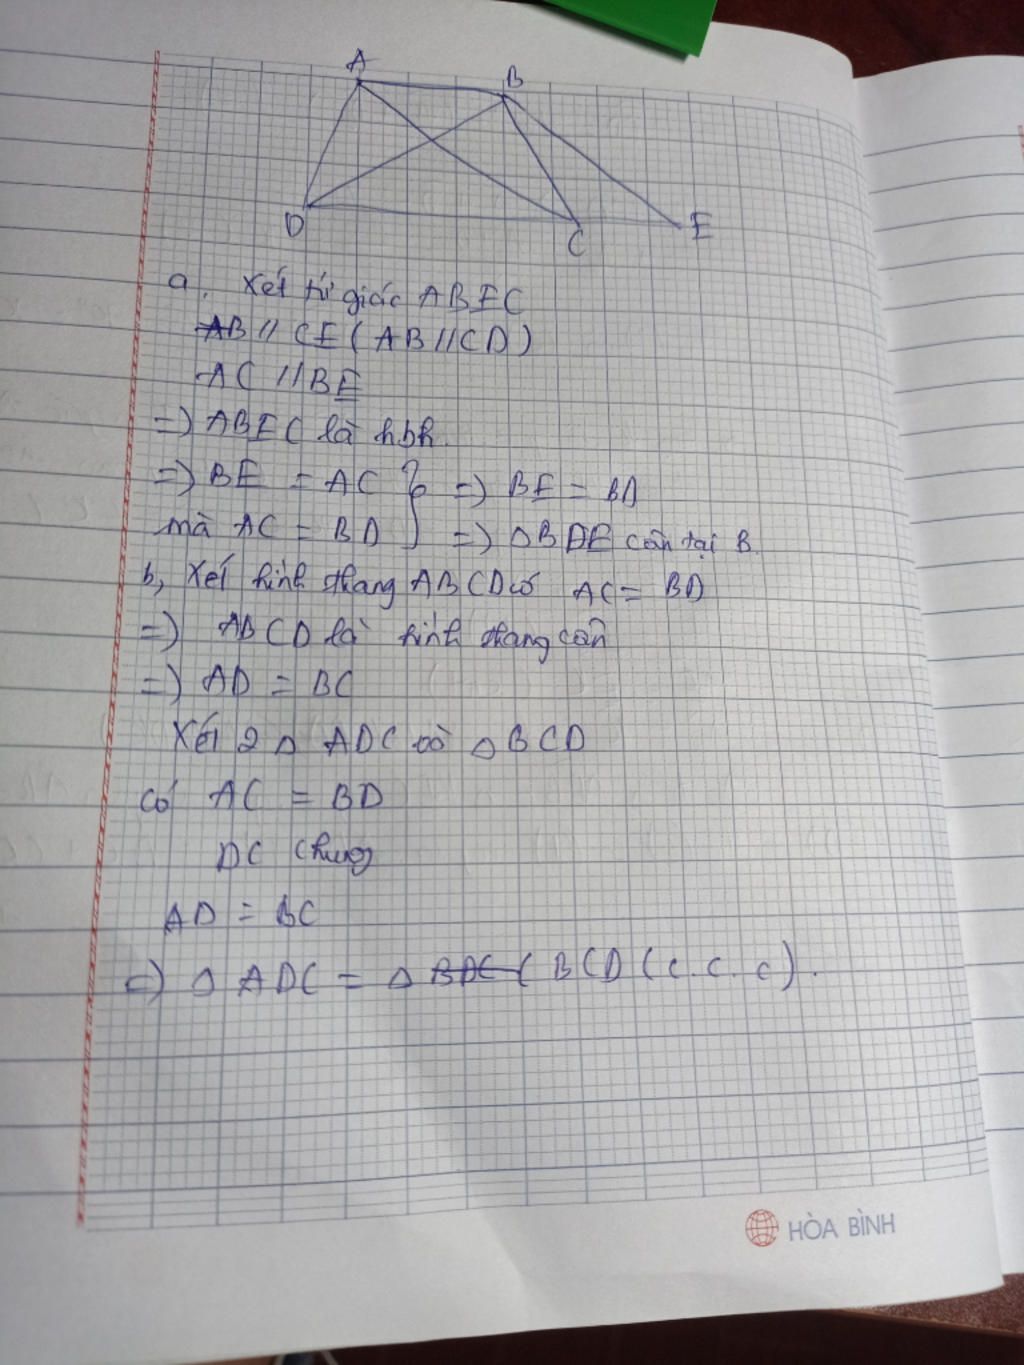 A
B
D
C
E
a. Xét tứ giác ABEC
AB // CE (AB // CD)
AC // BE
=) ABEC là hbh.
=) BE = AC } =) BE = BD
mà AC = BD } =) △BDE cân tại B.
b, Xét hình thang ABCD có AC = BD
=) ABCD là hình thang cân
=) AD = BC
Xét 2 △ ADC và △ BCD
có AC = BD
DC chung
AD = BC
=) △ ADC = △ BDC ( BCD (c.c.c).
HÒA BÌNH